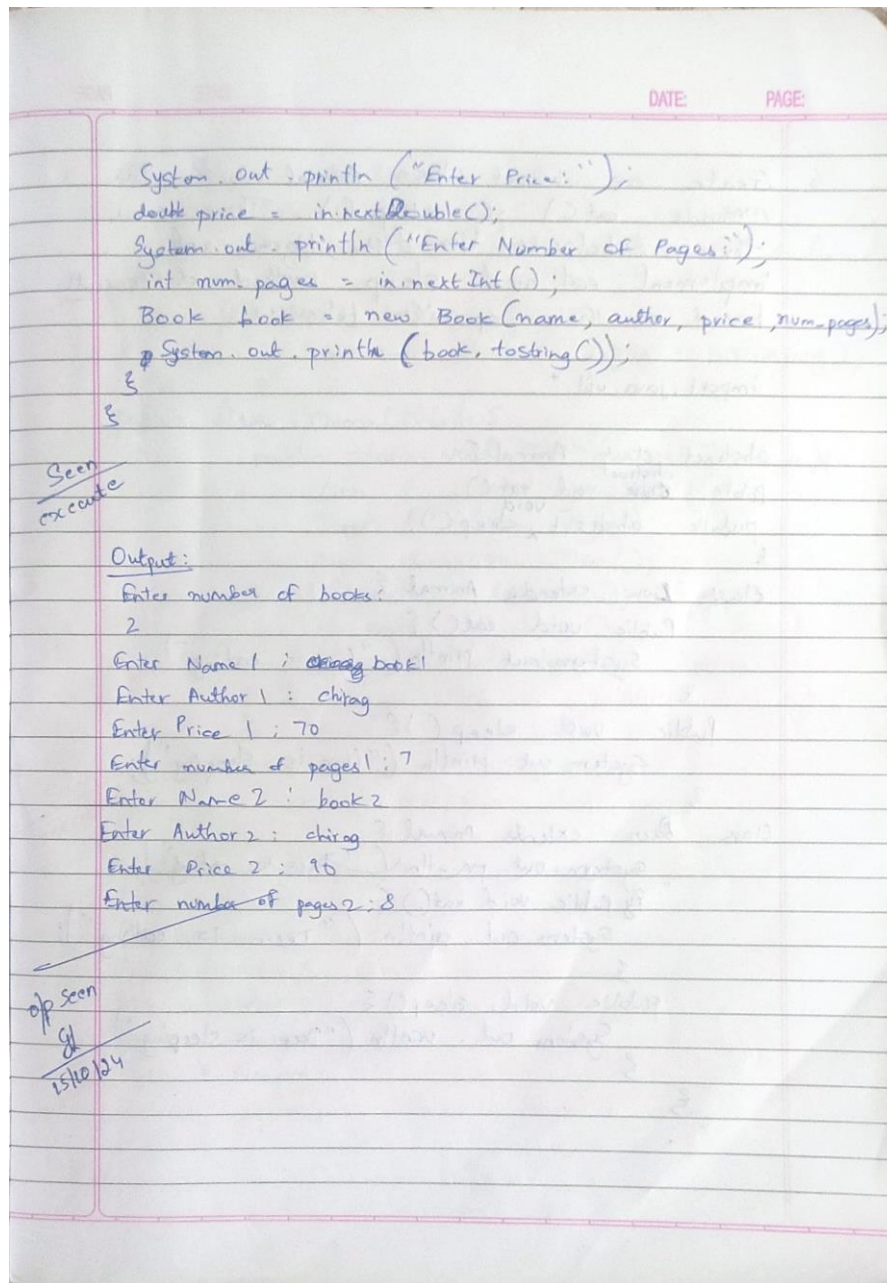 DATE: PAGE:
System. out. println ("Enter Price:");
double price = in.nextDouble();
System. out. println ("Enter Number of Pages:");
int num_pages = in.nextInt();
Book book = new Book(name, author, price, num_pages);
System. out. println (book, tostring());
}
}
Seen
execute
Output:
Enter number of books:
2
Enter Name 1 : book1
Enter Author 1 : chirag
Enter Price 1 : 70
Enter number of pages 1 : 7
Enter Name 2 : book2
Enter Author 2 : chirag
Enter Price 2 : 90
Enter number of pages 2 : 8
o/p seen
15/10/24